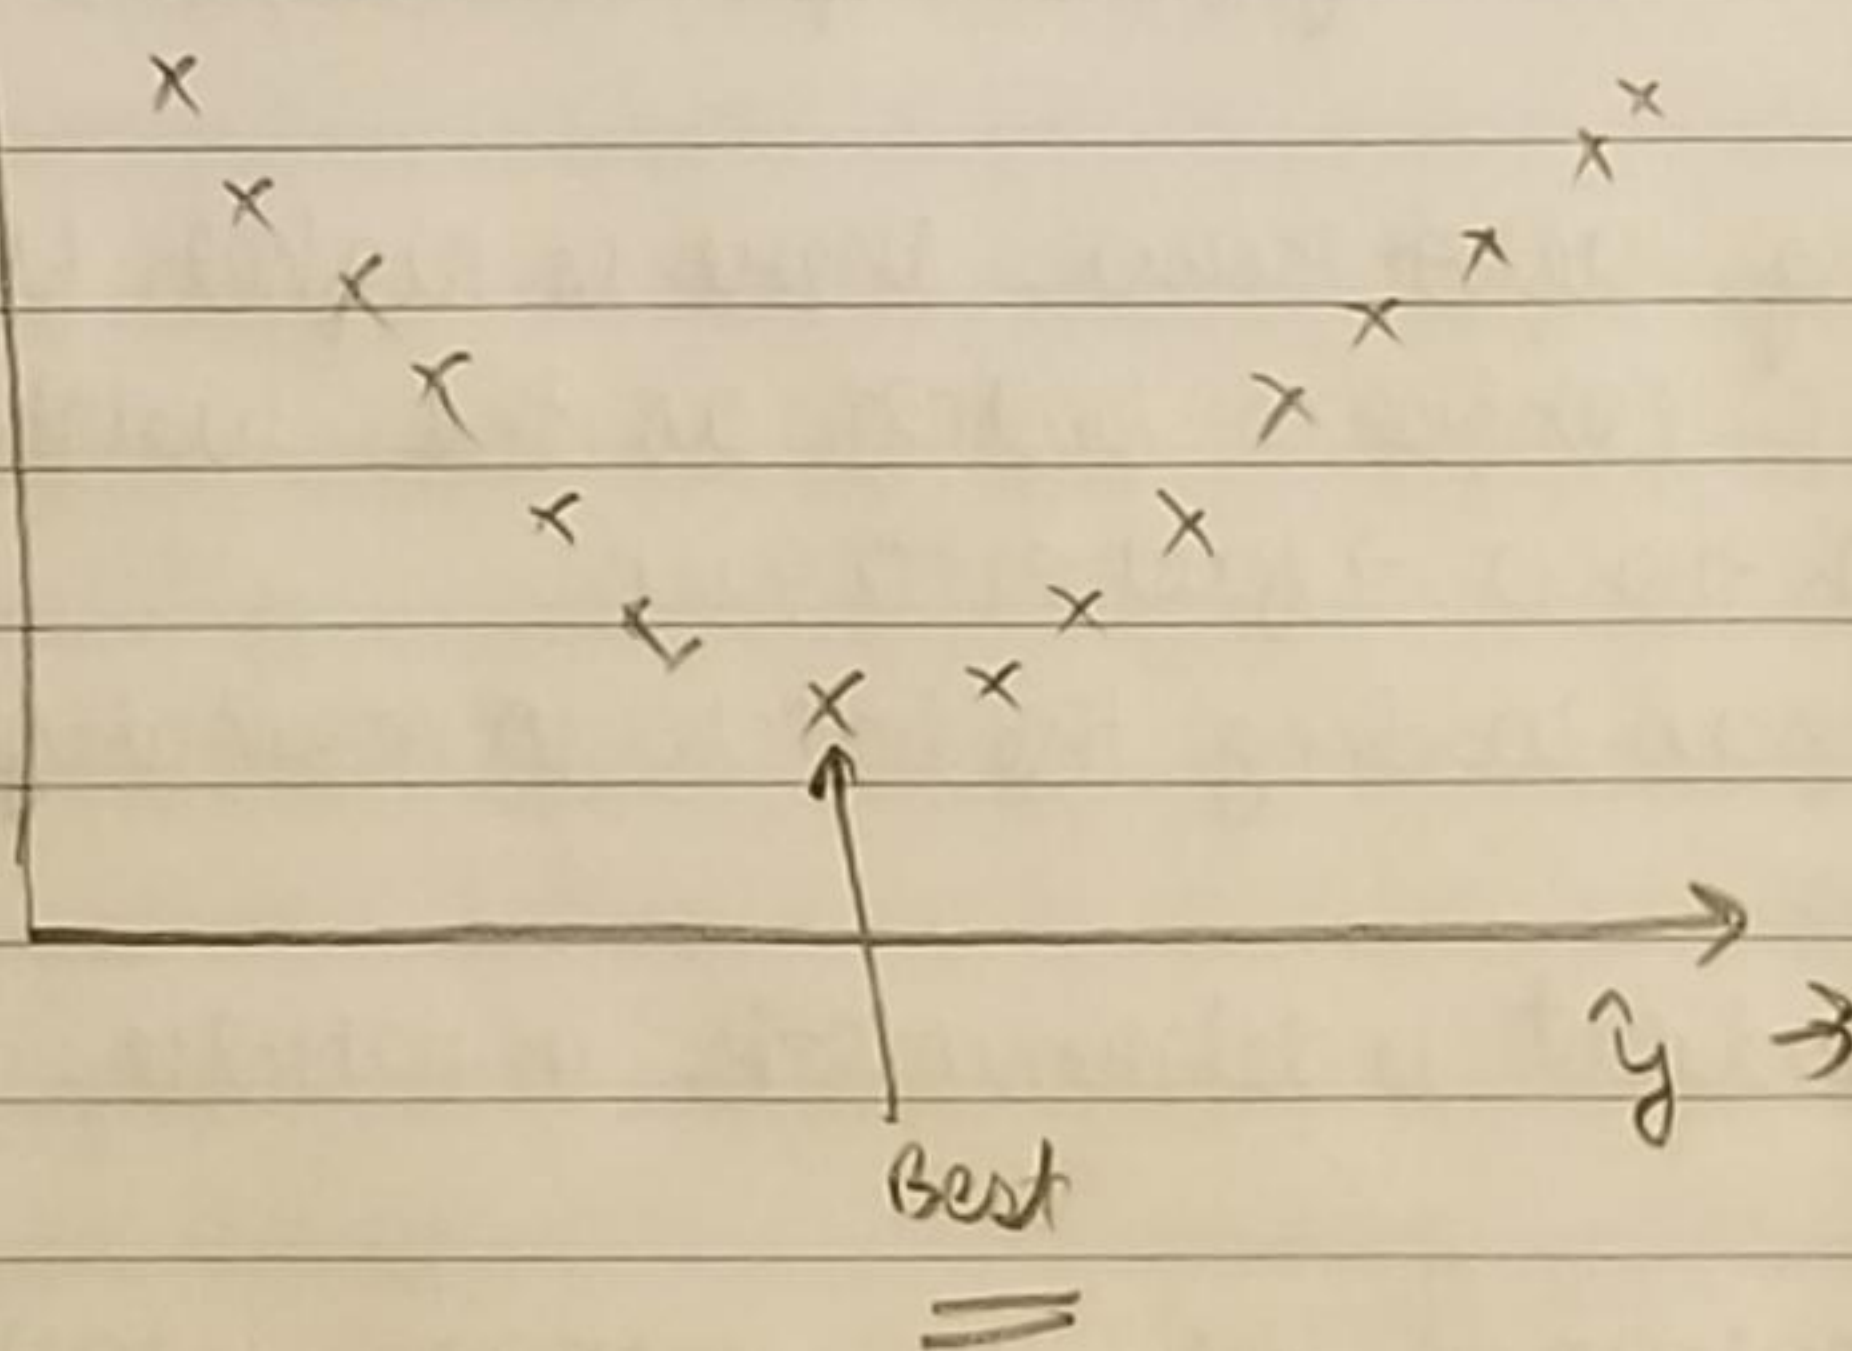 ŷ →
Best